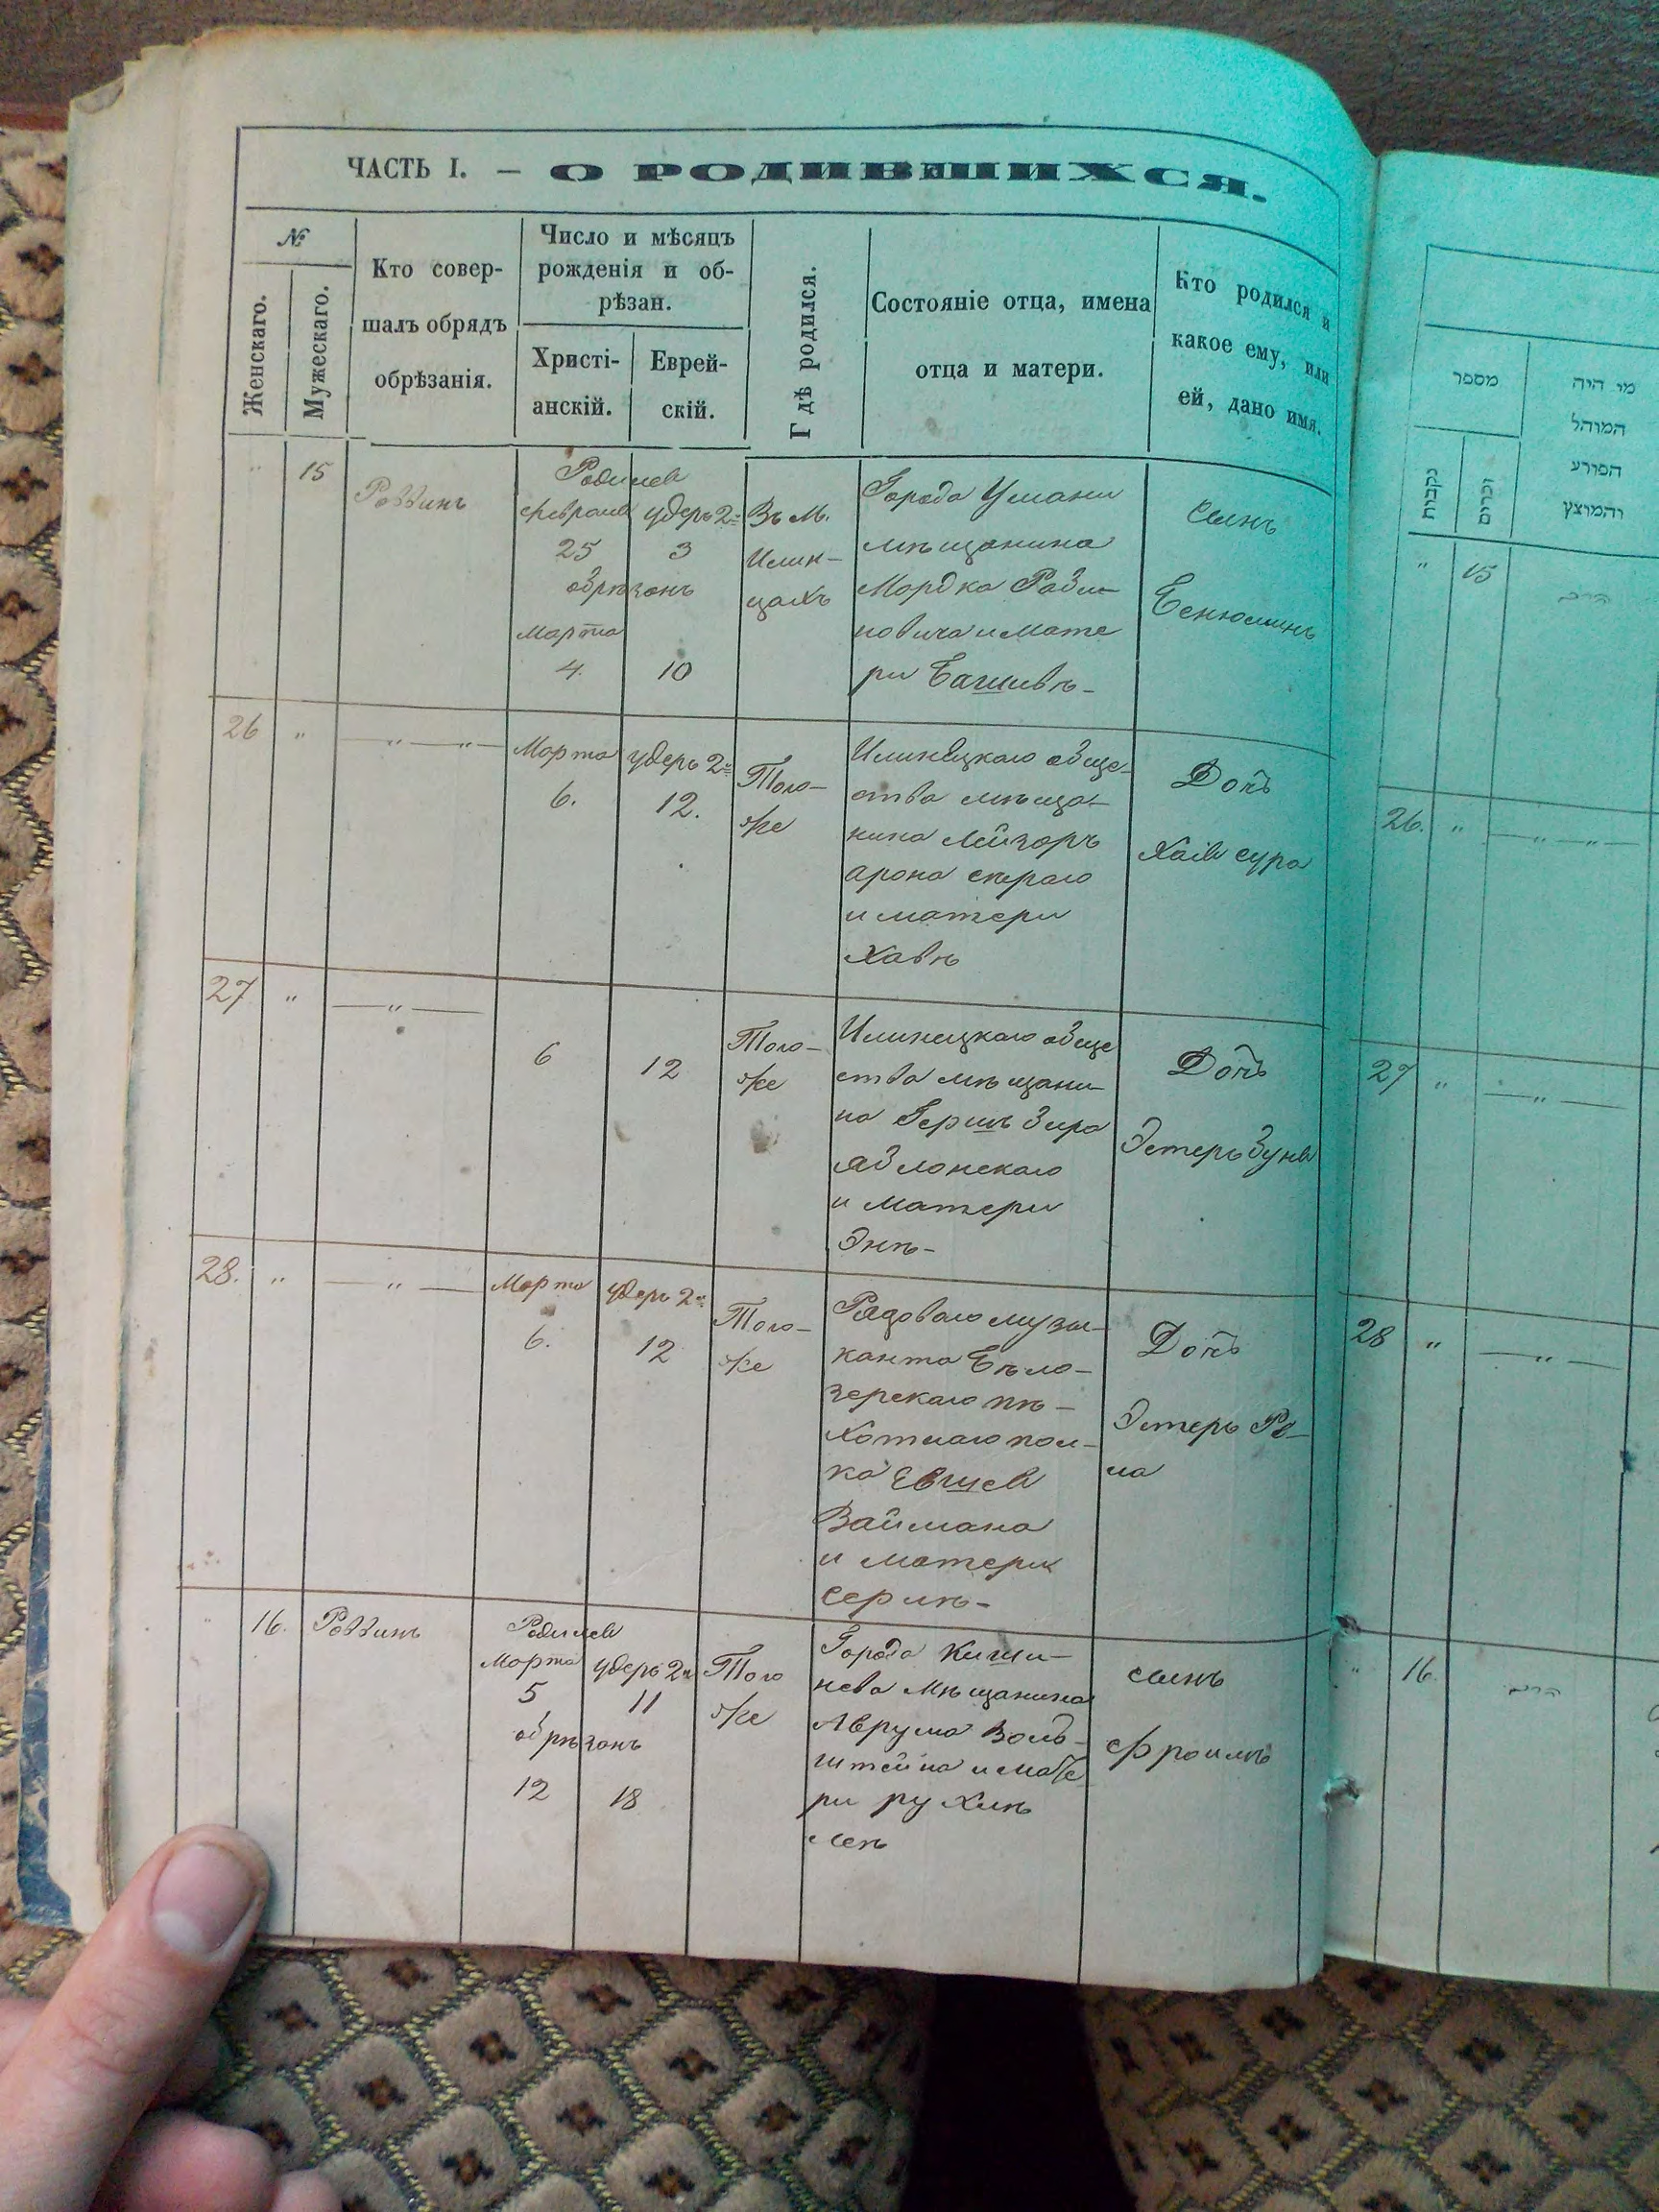 ЧАСТЬ I. — О РОДИВШИХСЯ.
№
Женскаго.
Мужескаго.
Кто совер-
шалъ обрядъ
обрѣзанія.
Число и мѣсяцъ
рожденія и об-
рѣзан.
Христі-
анскій.
Еврей-
скій.
Гдѣ родился.
Состояніе отца, имена
отца и матери.
Кто родился и
какое ему, или
ей, дано имя.
"
15
Раввинъ
Родился
февраля
25
обрѣзанъ
марта
4.
удеръ 2й
3
10
Въ м.
Илин-
цахъ
Города Умани
мѣщанина
Мордка Раби-
новича и мате
ри Башивѣ-
Сынъ
Бенюминъ
26
"
— " — " —
Марта
6.
удеръ 2й
12.
Того-
же
Илинецкаго обще-
ства мѣща-
нина Лейзоръ
арона
и матери
Хавѣ
Дочь
Хаія сура
27
"
— " —
6
12
Того-
же
Илинецкаго обще
ства мѣщани-
на Гершъ
Яблонскаго
и матери
Энѣ-
Дочь
Эстеръ
28.
"
— " —
Марта
6.
удеръ 2й
12
Того-
же
Рядоваго музы-
канта Бѣло-
зерскаго пѣ-
хотнаго пол-
ка
Ваймана
и матери
Дочь
Эстеръ
"
16.
Раввинъ
Родился
Марта
5
обрѣзанъ
12
удеръ 2й
11
18
Того
же
Города Киши-
нева Мѣщанина
Аврума Воль-
штейна и мате
ри
Сынъ
Фроимъ
מספר
נקבות
זכרים
מי היה
המוהל
הפורע
והמוצץ
"
15
הרב
26.
"
— " —
27
"
— " —
28
"
— " —
"
16.
הרב